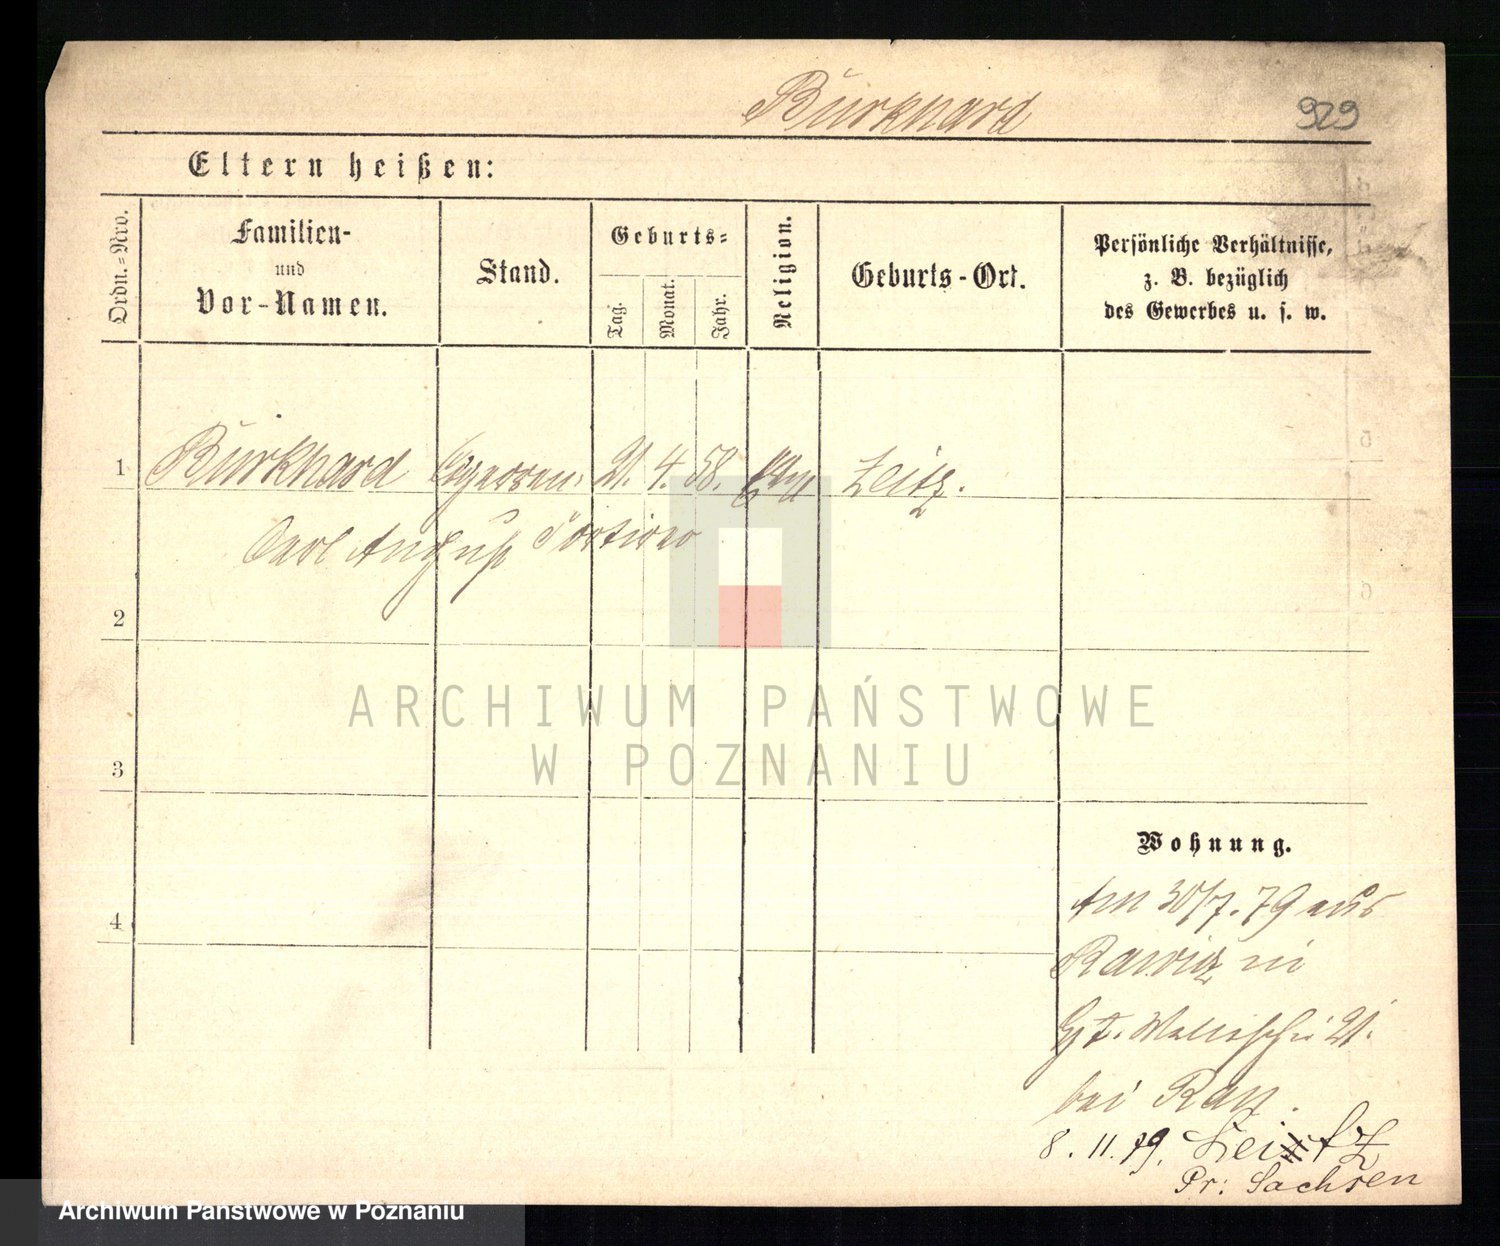 Burkhard
929
Eltern heißen:
Ordn.-Nro.
Familien-
und
Vor-Namen.
Stand.
Geburts-
Tag.
Monat.
Jahr.
Religion.
Geburts-Ort.
Persönliche Verhältnisse,
z. B. bezüglich
des Gewerbes u. s. w.
1 Burkhard 21. 4. 58. Zeitz.
Carl August
2
3
4
Wohnung.
Am 30/7. 79 aus
Rawicz in
Gt. Wallischei 21.
bei
8. 11. 79.
Pr: Sachsen
ARCHIWUM PAŃSTWOWE
W POZNANIU
Archiwum Państwowe w Poznaniu